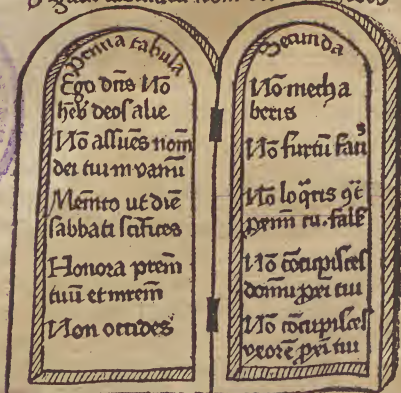 Prima tabula
Ego dn̄s No
heb̄ deos alie
Nō assūes nom̄
dei tui in vanū
Mem̄to ut diē
sabbati sc̄ifices
Honora prēm
tuū et mrēm
Non occides
Secunda
Nō mecha
beris
Nō furtū facis
Nō loq̄ris ꝯt̄
ꝓxim̄ tu. fals̄
Nō cōcupisces
domū ꝓxi tui
Nō cōcupisces
vxorē ꝓxi tui